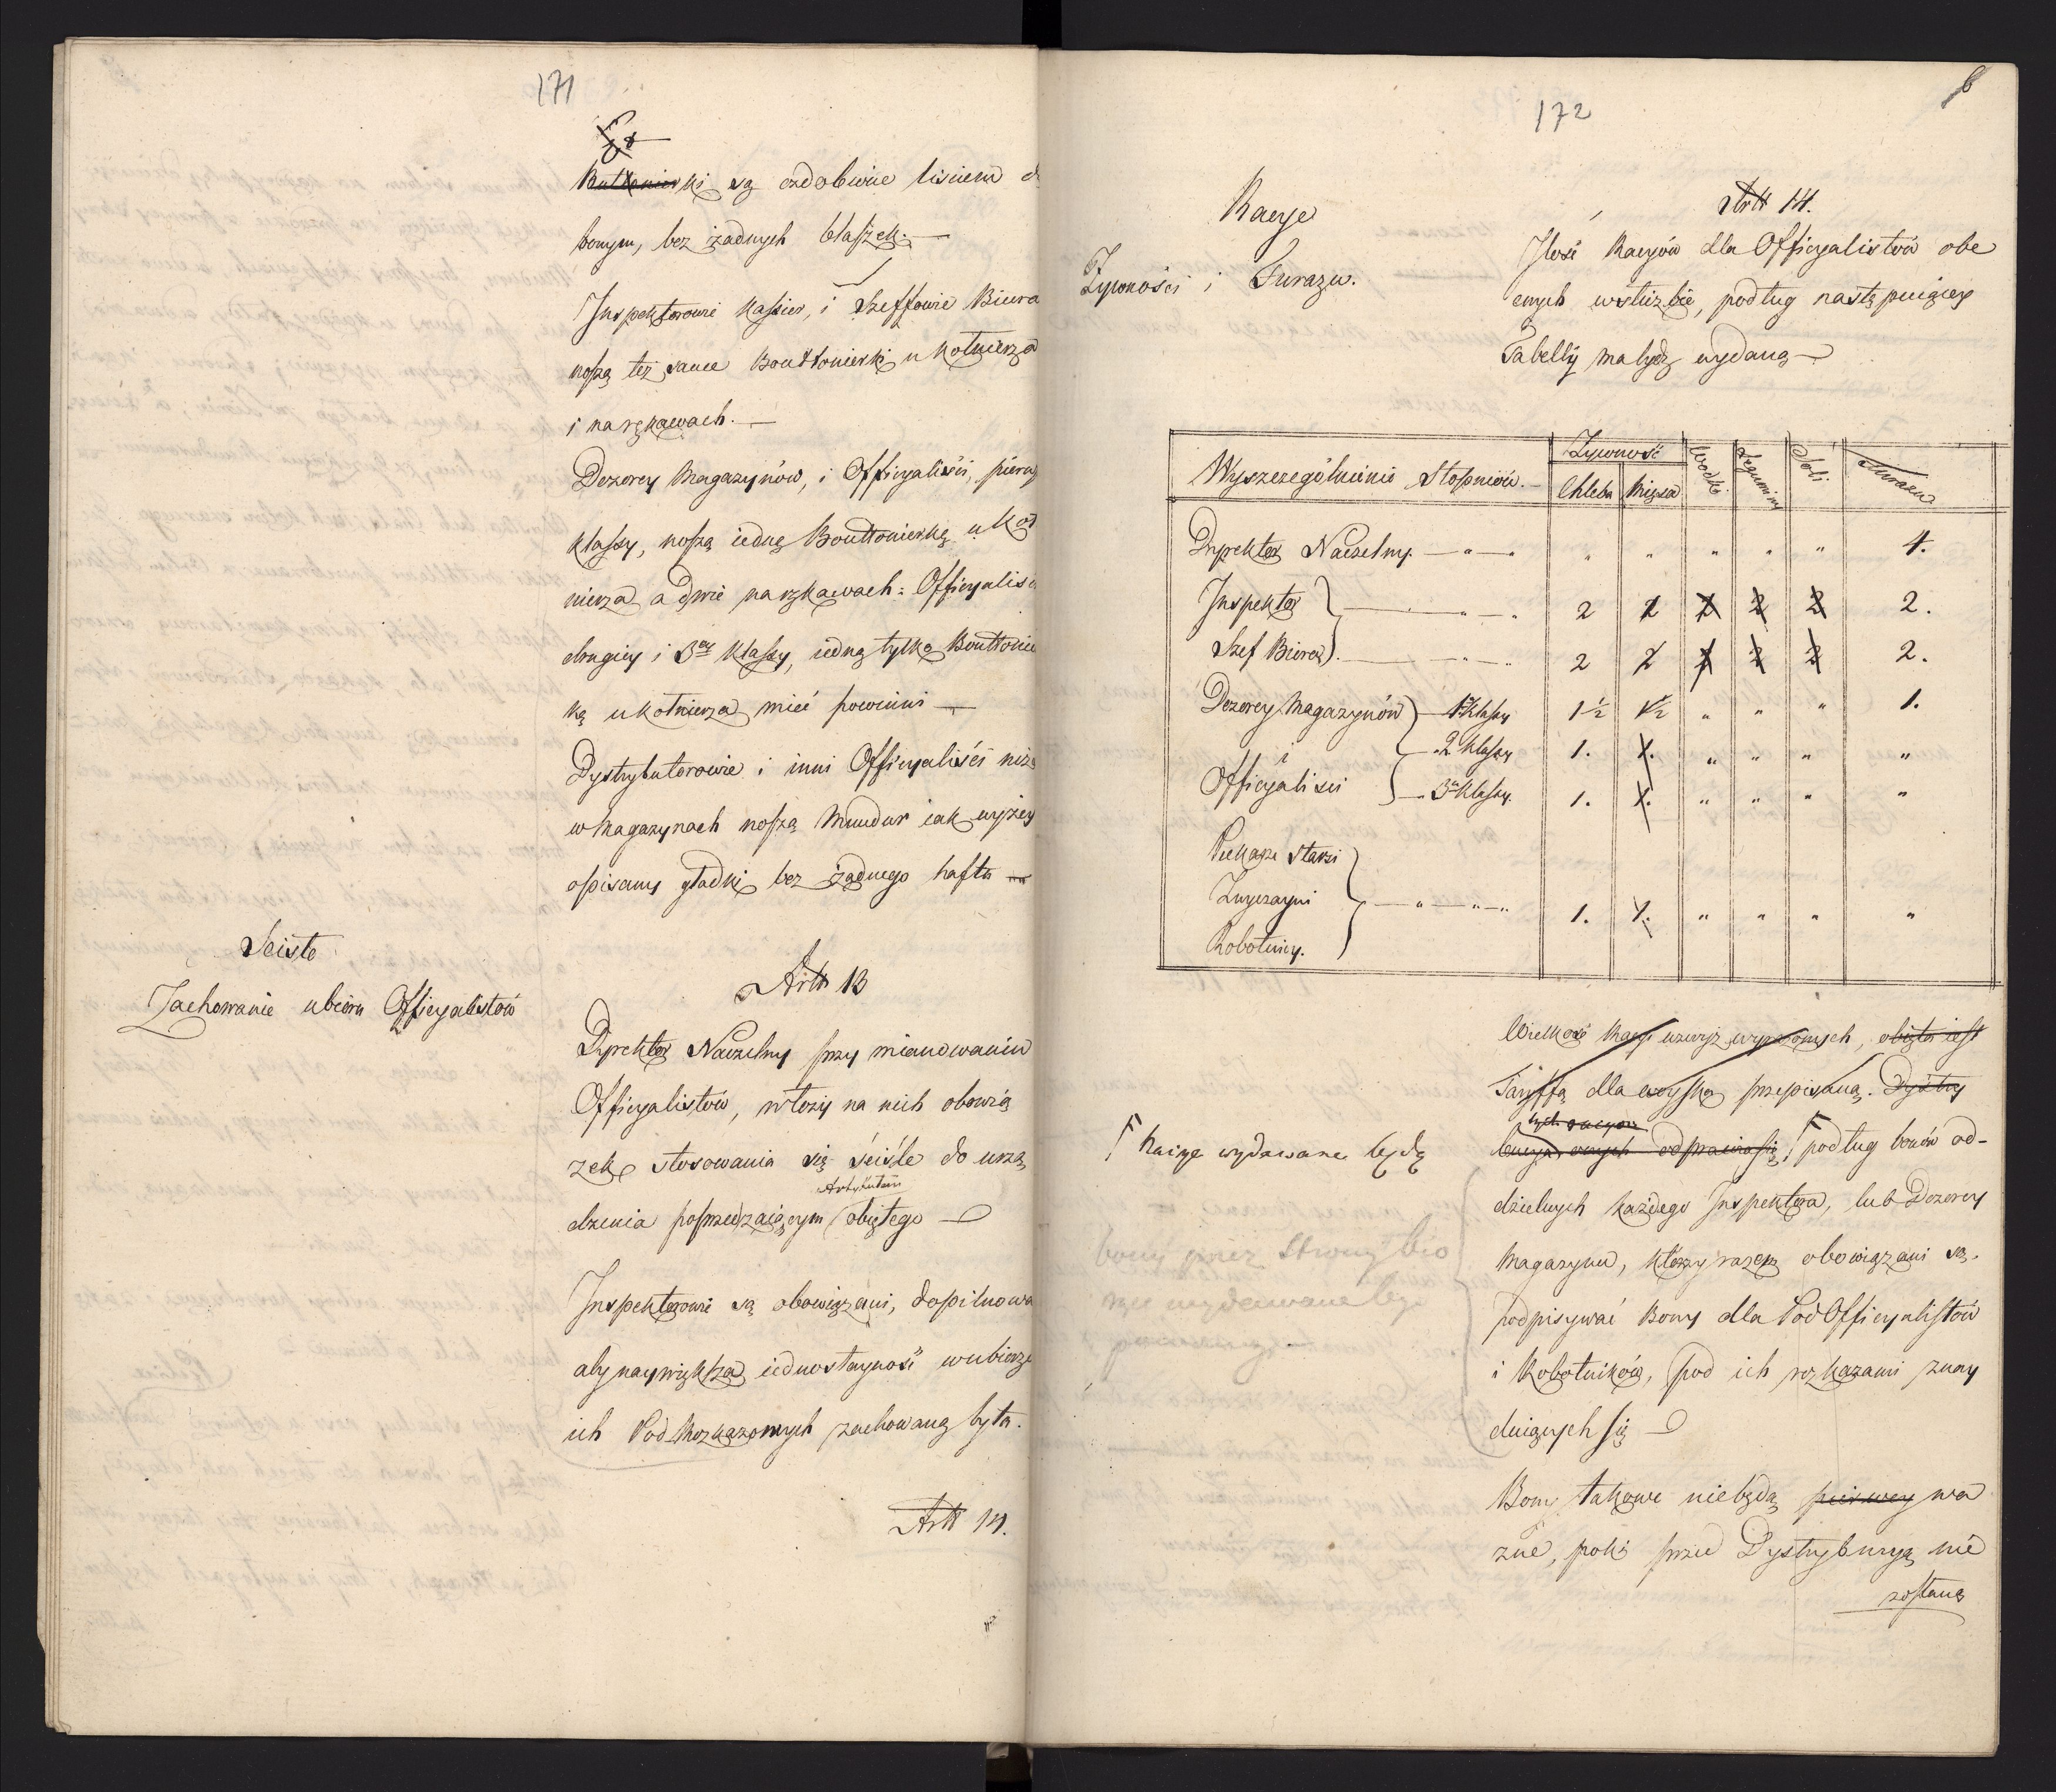 171
Buttonierki są ozdobione lisiem
bonym, bez żadnych blaszek.—
Inspektorowie Kassier, i Szeffowie Biura
noszą też same Bouttonierki u Kołnierza
i na rękawach.—
Dozorcy Magazynów, i Officyaliści, pierw
klassy, noszą iedną Bouttonierkę u Koł
nierza a dwie na rękawach: Officyaliści
drugiey i 3ey Klassy, iedną tylko Bouttonier
kę u Kołnierza mieć powinni —
Dystrybutorowie i inni Officyaliści niżs
w Magazynach noszą Mundur iak wyżey
opisany gładki bez żadnego haftu —
Sciste
Zachowanie ubioru Officyalistów
Artt 13
Dyrektor Naczelny przy mianowaniu
Officyalistów, włoży na nich obowią
zek stosowania się ściśle do urzą
Artykułem
dzenia poprzedzaiącym obiętego —
Inspektorowie są obowiązani, dopilnowa
aby naywiększa iednostayność w ubiorze
ich Pod Rozkazowych zachowaną była.
Artt 14.
172
6
Racye
Żywności i Furażu.
Artt 14.
Ilość Racyów dla Officyalistów obe
cnych w służbie, podług następuiącey
Tabelly ma bydź wydaną —
Wyszczególnienie Stopniów.— Żywność Wodki Leguminy Soli Furażu
Chleba Mięsa
Dyrektor Naczelny. — " — " " " " " " 4.
Inspektor — " — " 2 2 2 2 2 2.
Szef Biura — " — " 2 2 2 2 2 2.
Dozorcy Magazynów 1ey Klassy 1½ 1½ " " " 1.
i 2 Klassy 1. 1. " " " "
Officyaliści 3ey Klassy. 1. 1. " " " "
Piekarze Starsi
Zwyczayni — " — " — " 1. 1. " " " "
Robotnicy.
Wielkość Racyi wzwyż wyrażonych, obięta iest
Taryffą dla woyska przepisaną. Dystry
tych racyow
bucya onych odprawia się, podług bonów od-
Racye wydawane będą
dzielnych każdego Inspektora, lub Dozorcy
Magazynu, którzy razem obowiązani są
podpisywać Bony dla Pod Officyalistów
i Robotników, pod ich rozkazami znay
duiących się —
bony przez Strony bio
rące wydawane być
powinny
Bony takowe nie będą pierwey wa
żne, poki przed Dystrybucyą nie
zostaną